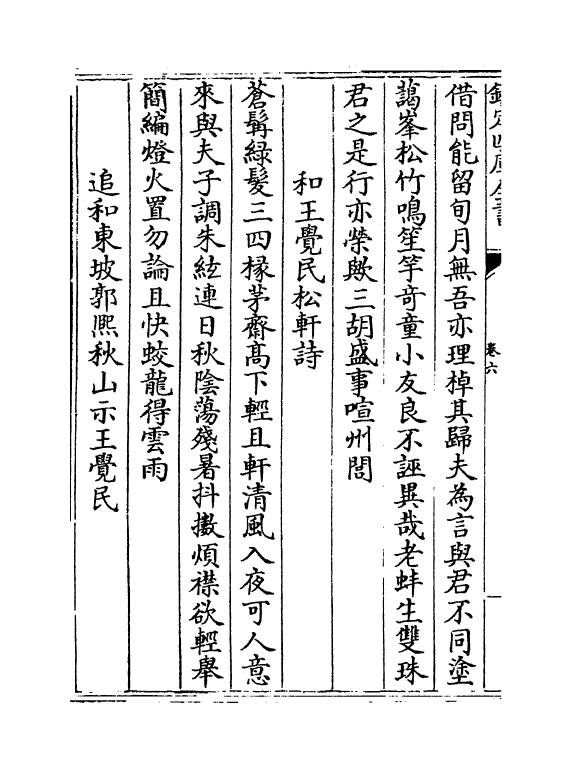 欽定四庫全書
卷六
借問能留旬月無吾亦理棹其歸夫為言與君不同塗
藹峯松竹鳴笙竽奇童小友良不誣異哉老蚌生雙珠
君之是行亦榮歟三胡盛事喧州閭
和王覺民松軒詩
蒼髯綠髮三四椽茅齋髙下輕且軒清風入夜可人意
來與夫子調朱絃連日秋陰蕩殘暑抖擻煩襟欲輕舉
簡編燈火置勿論且快蛟龍得雲雨
追和東坡郭熈秋山示王覺民